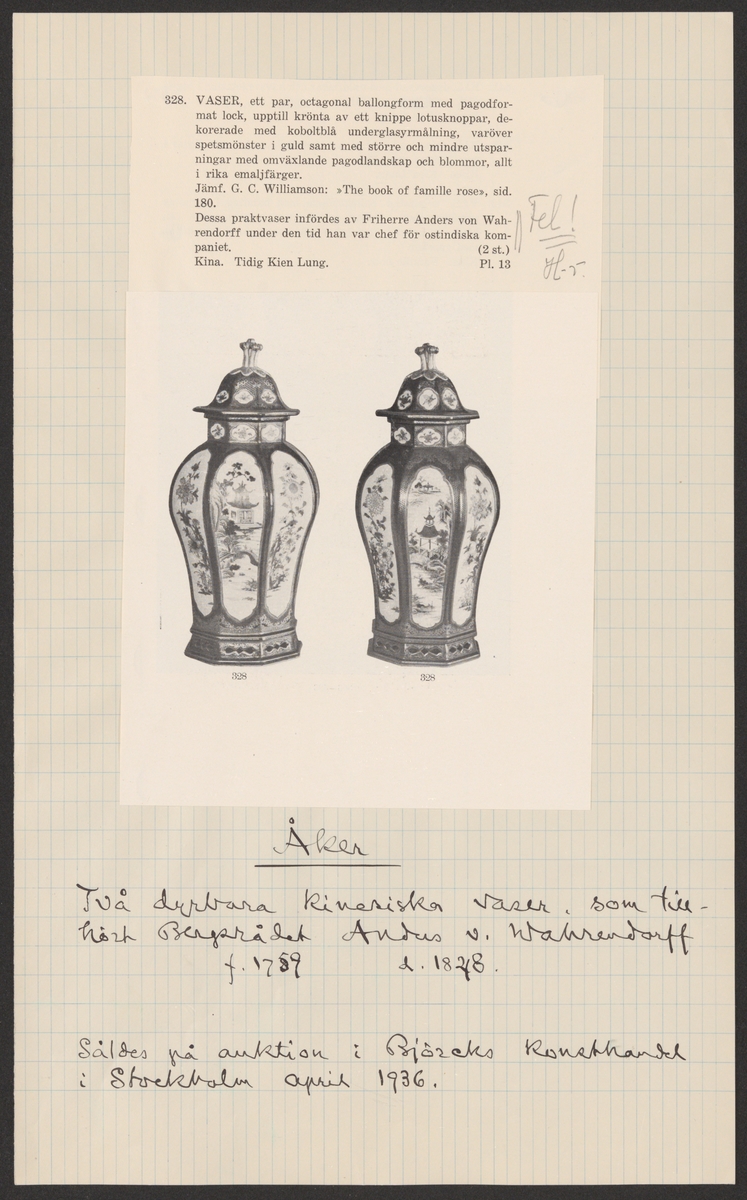 328. VASER, ett par, octagonal ballongform med pagodfor-
mat lock, upptill krönta av ett knippe lotusknoppar, de-
korerade med koboltblå underglasyrmålning, varöver
spetsmönster i guld samt med större och mindre utspar-
ningar med omväxlande pagodlandskap och blommor, allt
i rika emaljfärger.
Jämf. G. C. Williamson: »The book of famille rose», sid.
180.
Dessa praktvaser infördes av Friherre Anders von Wah-
rendorff under den tid han var chef för ostindiska kom-
paniet. (2 st.)
Kina. Tidig Kien Lung. Pl. 13
Fel!
H-r.
328 328
Åker
Två dyrbara kinesiska vaser, som till-
hört Bergsrådet Anders v. Wahrendorff
f. 1759 d. 1848.
Såldes på auktion i Björcks konsthandel
i Stockholm april 1936.